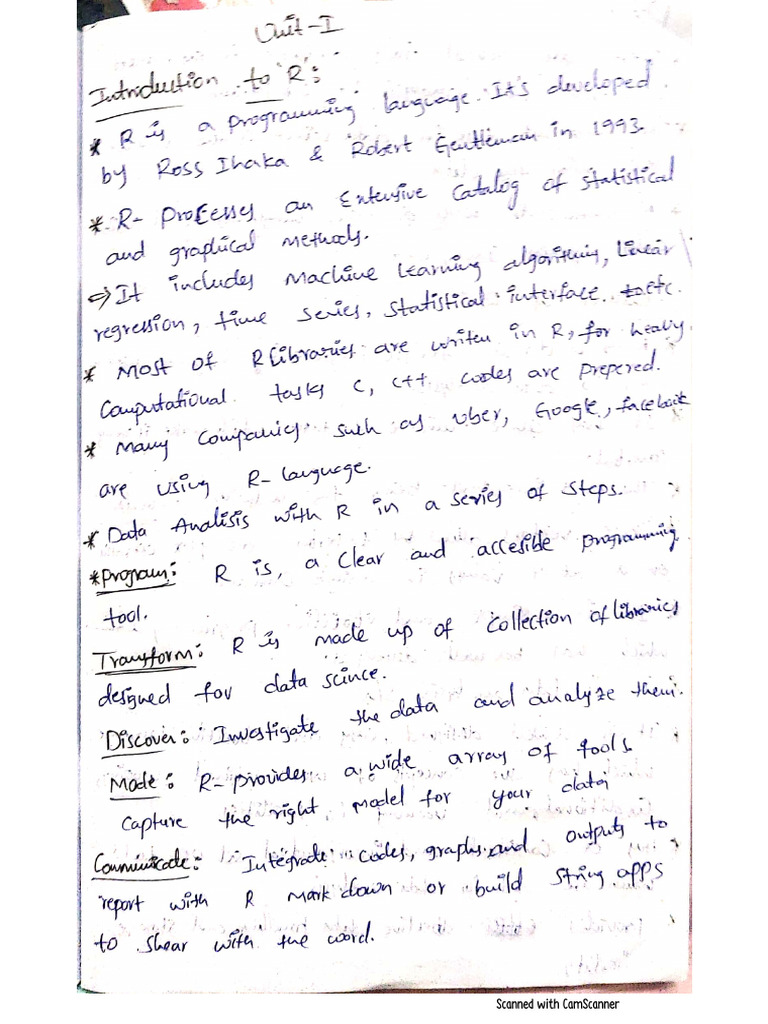 Unit-I
Introduction to R:
* R is a programming language. It's developed
by Ross Ihaka & Robert Gentleman in 1993.
* R- Processes an Extensive Catalog of statistical
and graphical methods.
=> It includes Machine Learning algorithms, Linear
regression, time series, statistical interface etc.
* Most of R Libraries are writen in R, for heavly
Computational tasks C, C++ codes are prepered.
* Many Companies such as Uber, Google, facebook
are using R-language.
* Data Analisis with R in a series of steps.
* Program: R is, a Clear and accesible programming
tool.
Transform: R is made up of collection of libraries
designed for data scince.
Discover: Investigate the data and analyze them.
Mode: R-provides a wide array of tools
capture the right model for your data
Communicate: Integrade codes, graphs and outputs to
report with R mark down or build string apps
to shear with the word.
Scanned with CamScanner